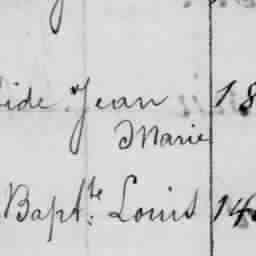 ide Jean 18
Marie
Bapt.te Louis 14